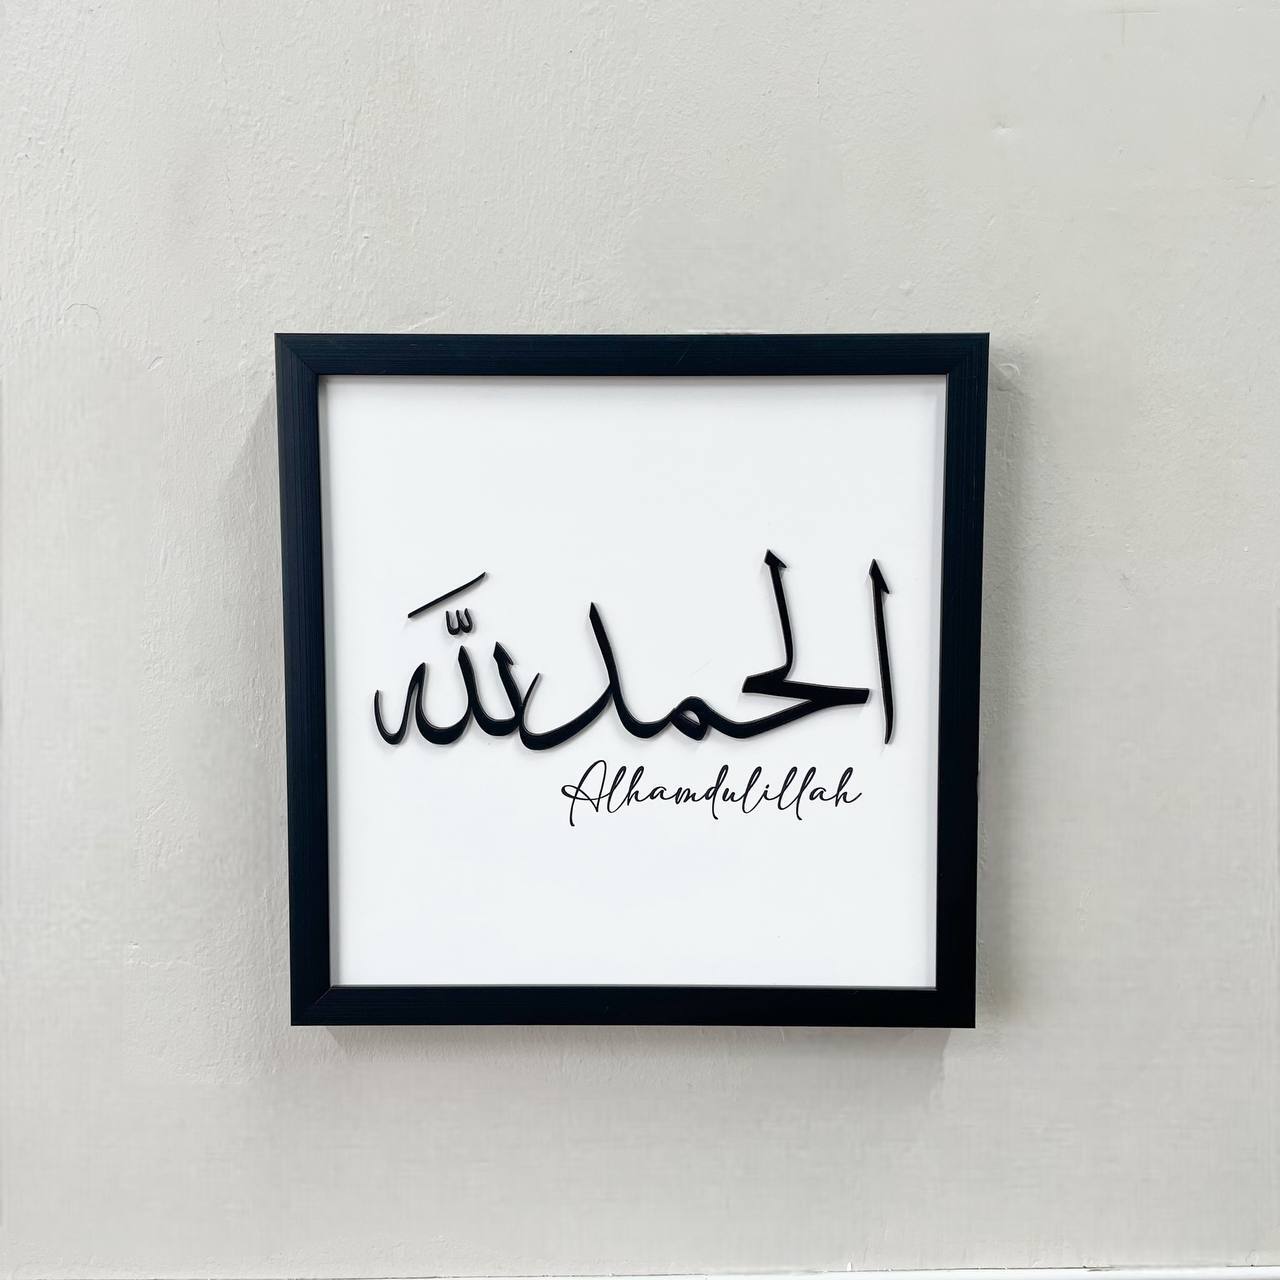 الحمدللّٰه
Alhamdulillah